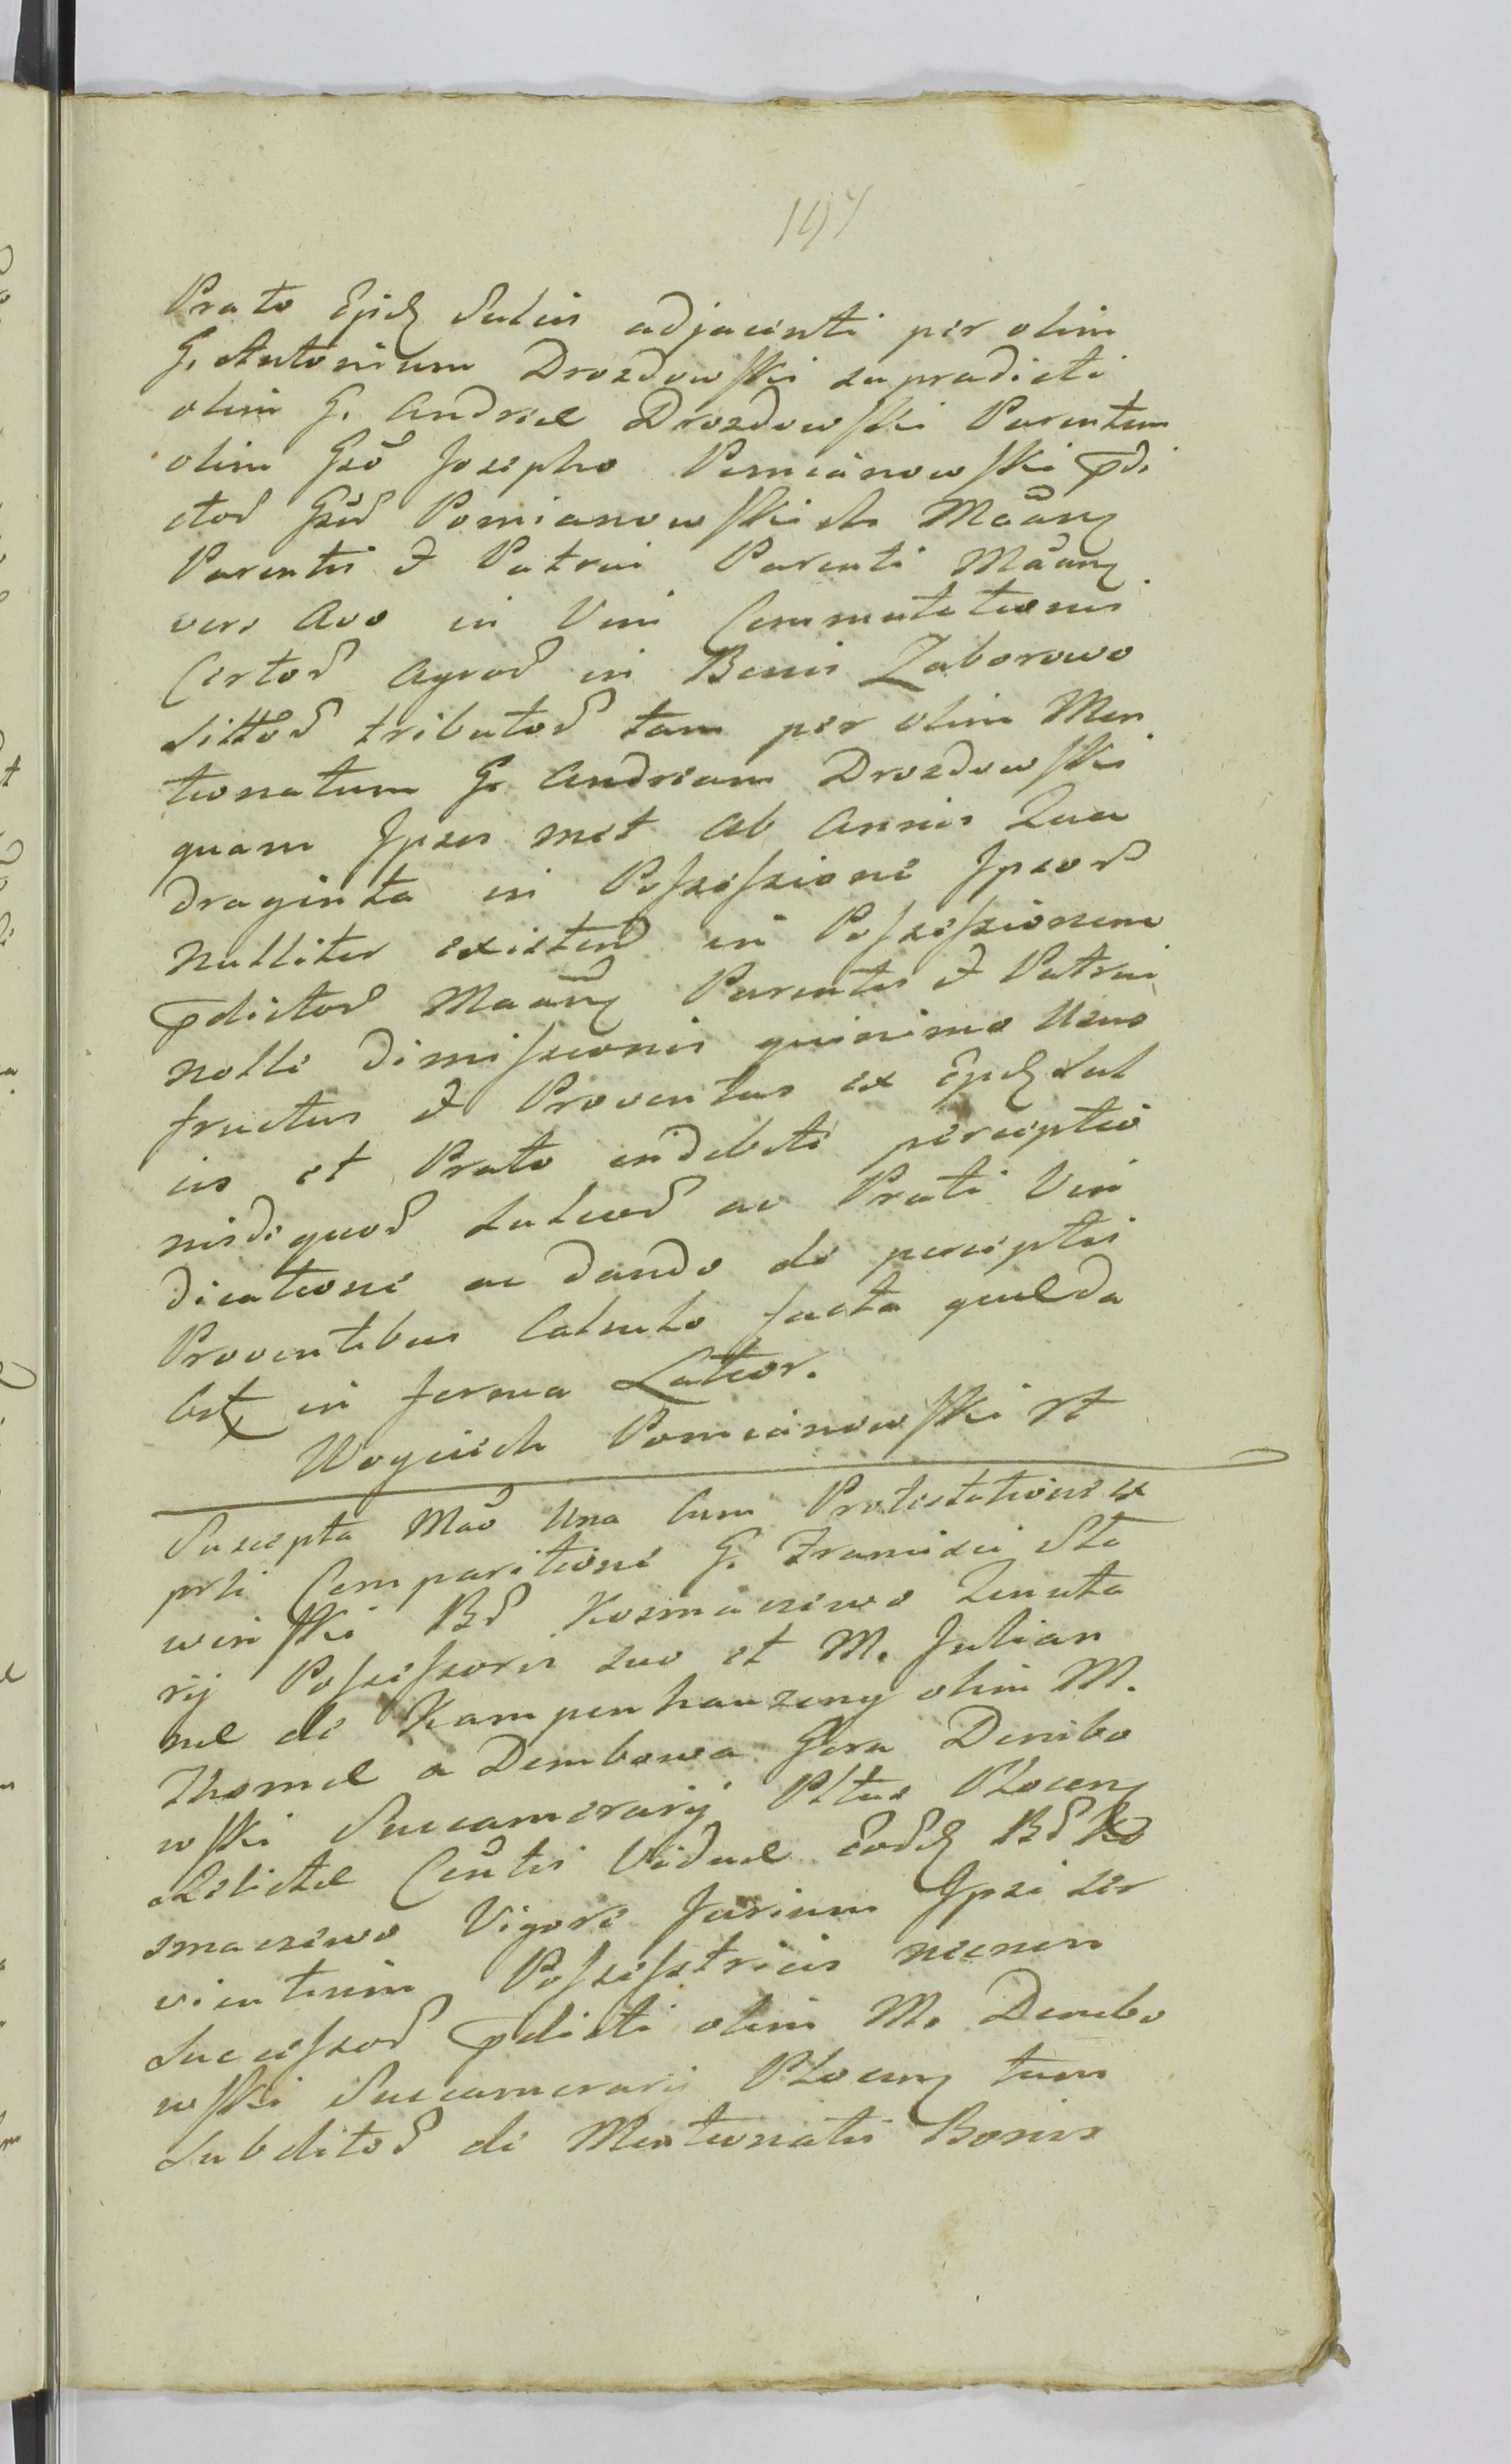 197
Prato Ejusd Salcis adjacenti per olim
G. Antonium Drozdowski supradicti
olim G. Andreæ Drozdowski Parentem
olim Gso Josepho Pomianowski pdi
ctor Gsor Pomianowskich Maang
Parentis & Patrui Parenti Maang
vero Avo in Vim Commutationis
Certor Agror in Bonis Zaborowo
sittor tributor tam per olim Men
tionatum G. Andream Drozdowski
quam Ipsos met ab Annis Qua
draginta in Possessione Ipsor
nulliter existend in Possessionem
pdictor Maang Parentis & Patrui
nolle dimissionis quinimo Usus
fructus & Proventus ex Ejusd Sal
cis et Prato indebite perceptio
nisdiquod Salcor ac Prati Vin
dicatione ac dando de perceptis
Proventibus Calculo facta quælda
Est in forma Latior.
Woyciech Pomianowski rt
Suscepta Mao Una Cum Protestatione ex
prti Comparitione G. Francisci Sta
winski Br Kozmaczewo Tenuta
rij Possessoris suo et M. Julian
næ de Kampenhauzeny olim M.
Thomæ a Dembowa Gora Dembo
wski Succamerarij Pltus Plocen
Relictæ Contis Viduæ Eord Br Ko
zmaczewo Vigore Jurium Ipsi ser
vientium Possesstricis necnon
Successor pdicti olim M. Dembo
wski Succamerarij Plocen tum
Subditor de Mentionatis Bonis